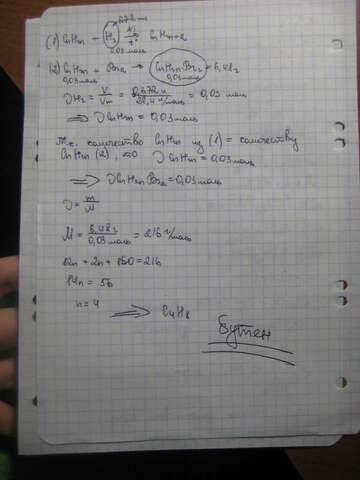 0,672 л
(1) CnH2n + H2 Ni t° → CnH2n+2
0,03 моль
(2) CnH2n + Br2 → CnH2nBr2 6,48 г
0,03 моль 0,03 моль
νH2 = V/Vm = 0,672 л/22,4 л/моль = 0,03 моль
⇒ νCnH2n = 0,03 моль
Т.к. количество CnH2n из (1) = количеству
CnH2n (2), то νCnH2n = 0,03 моль
⇒ νCnH2nBr2 = 0,03 моль
ν = m/M
M = 6,48 г/0,03 моль = 216 г/моль
12n + 2n + 160 = 216
14n = 56
n = 4 ⇒ C4H8
Бутен